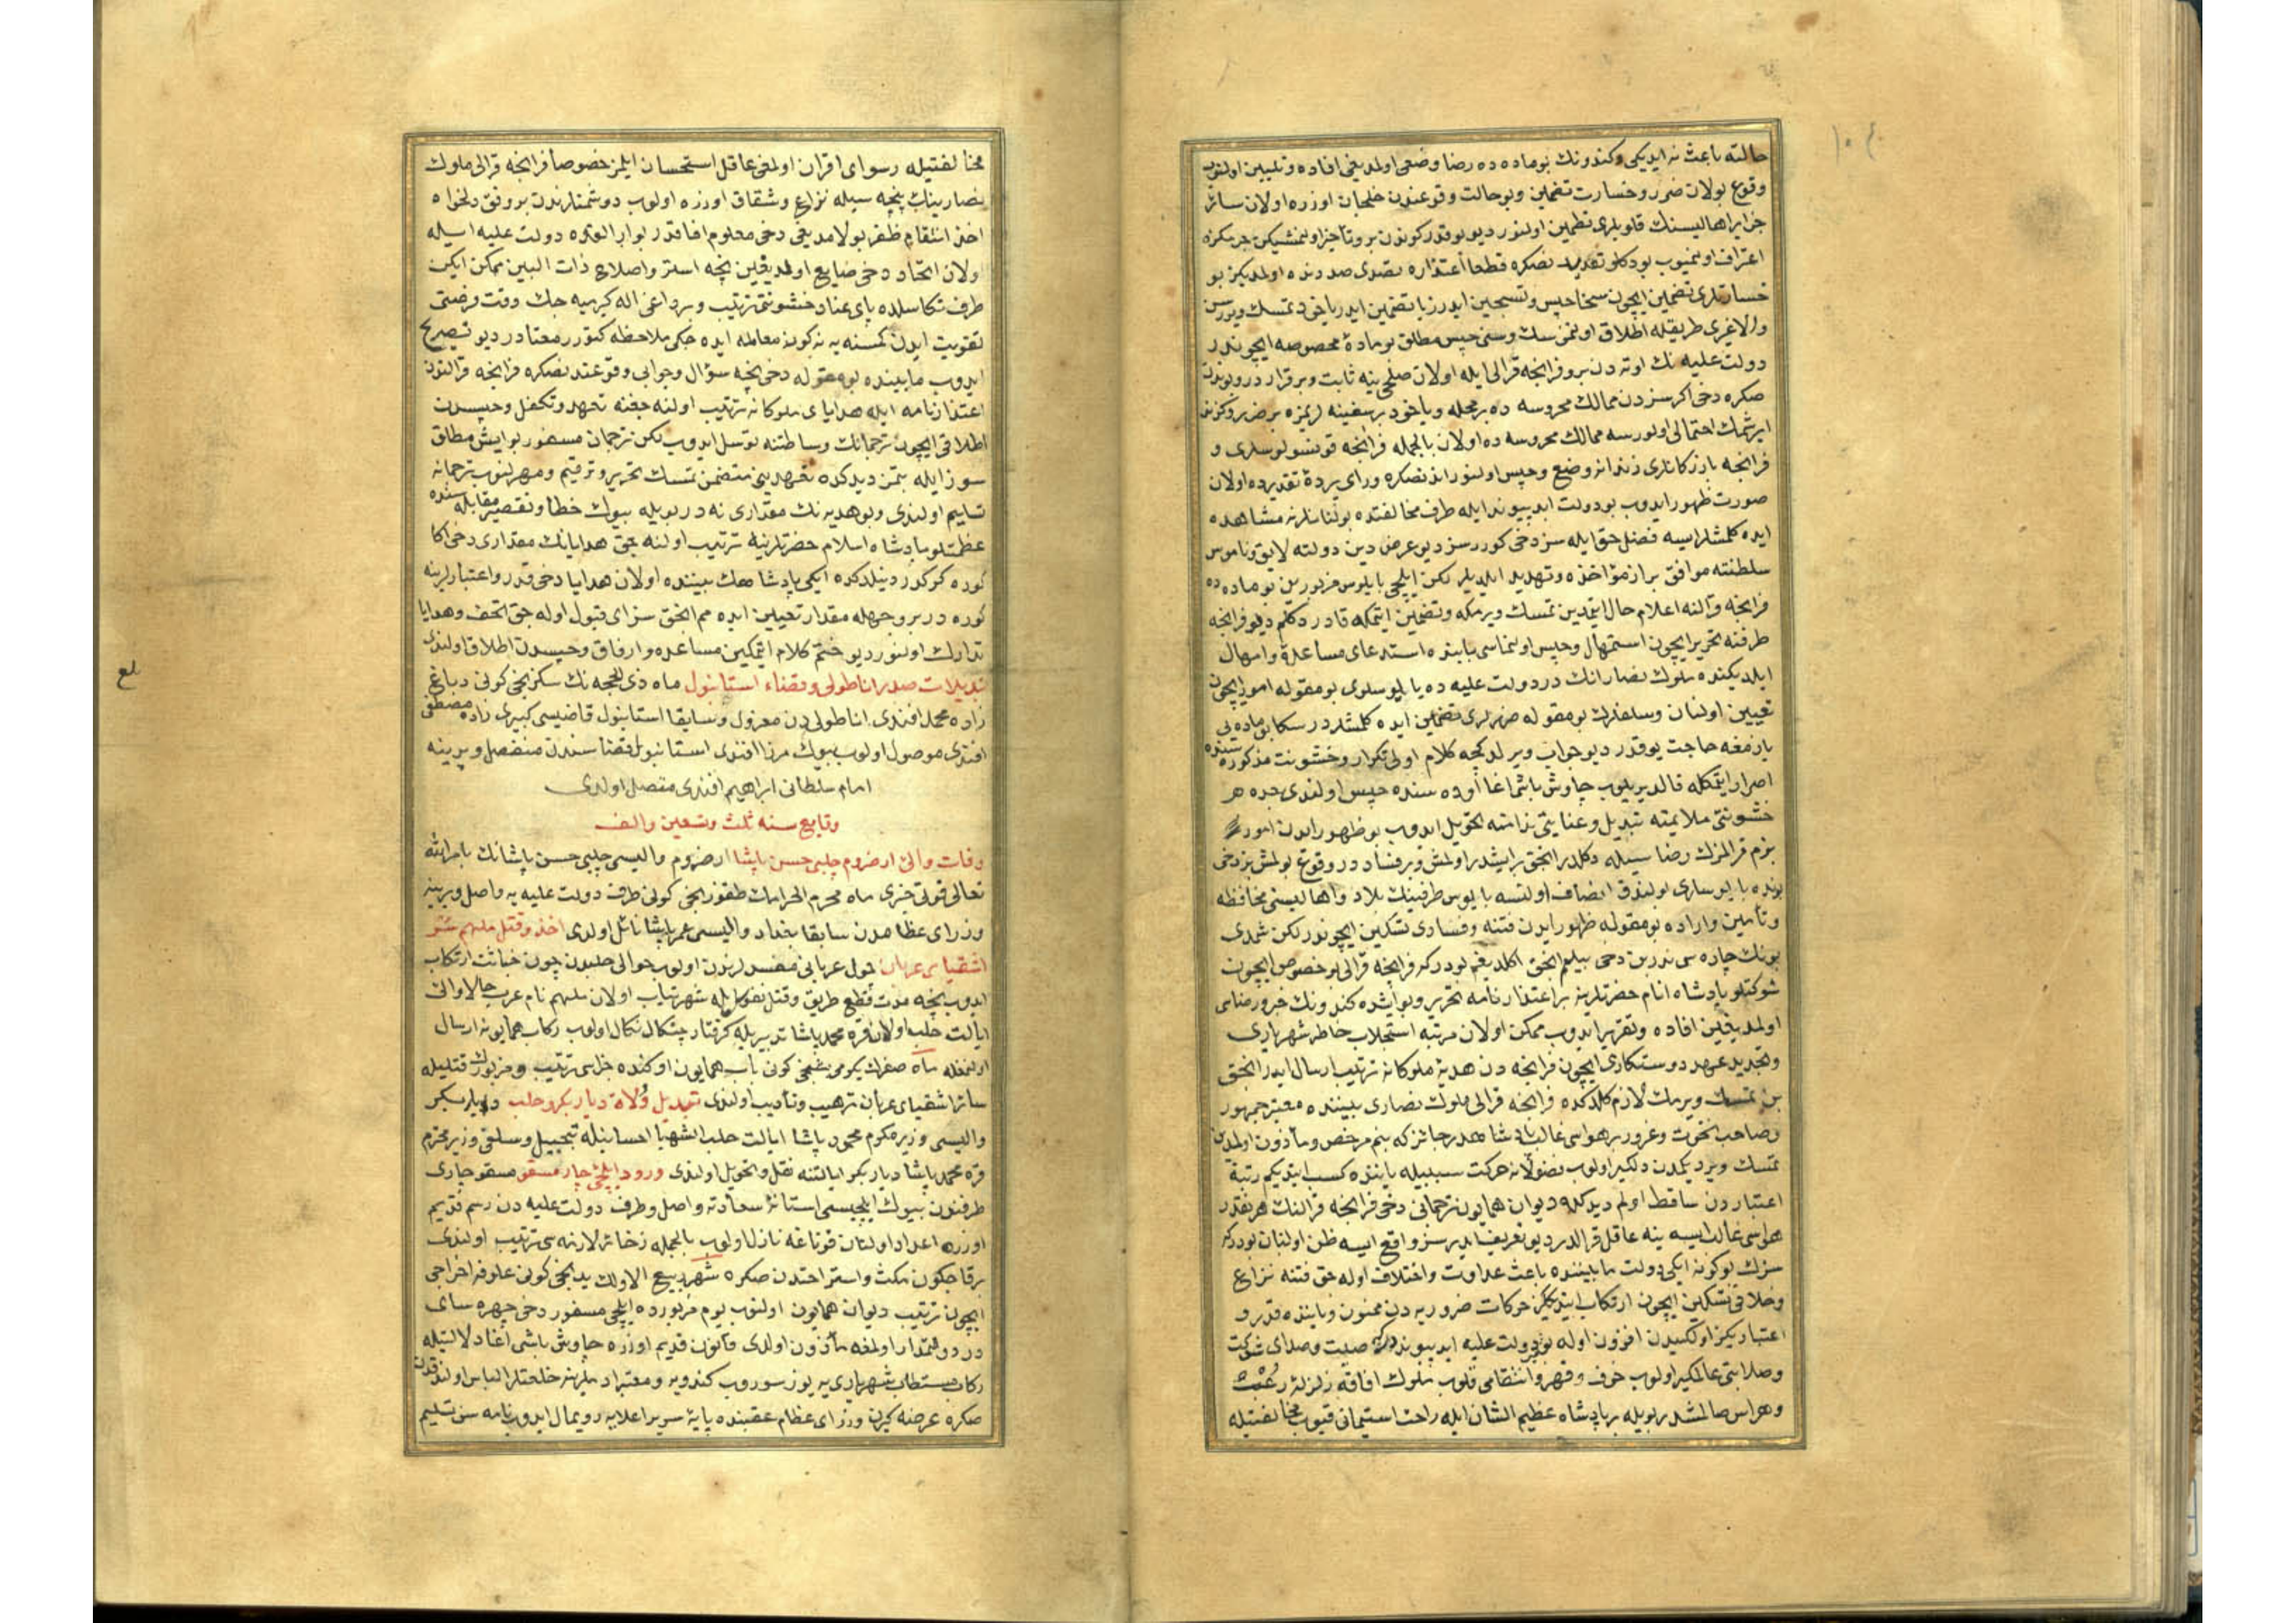 حالته باعث نه ایدیکی وکندونك بوماده ده رضا وضعی اولمدیغی افاده وتبیین اولنوب
وقوع بولان ضرر وخسارت تضمین وبو حالت وقوعندن خلجان اوزره اولان سائر
جزایر اهالیسنك قلوبلری تطمین اولنور دیو بوقدر کوندن برو تأخیر اولنمشیکن جرمکزه
اعتراف اولنمیوب بودکلو تقدیدن صکره قطعا اعتذاره تصدی صددنده اولمدیکز بو
خسارتلری تضمین ایچون سنی حبس وتسجین ایدرز یا تضمین ایدر یاخود تمسك ویررسن
والا غیری طریقله اطلاق اولنمزسك وسنی حبس مطلق بو مادۀ مخصوصه ایچوندر
دولت علیه نك اوته دن برو فرانچه قرالی ایله اولان صلحی ینه ثابت وبرقراردر وبوندن
صکره دخی اکر سزدن ممالك محروسه ده بر محله ویاخود بر سفینه لریمزه بر ضرر وکزند
ایرشمك احتمالی اولورسه ممالك محروسه ده اولان بالجمله فرانچه قونسولوسلری و
فرانچه بازرکانلری زندانه وضع وحبس اولنور اندن صکره ورای پردۀ تقدیرده اولان
صورت ظهور ایدوب بو دولت ابد پیوند ایله طرف مخالفتده بولنانلر نه مشاهده
ایده کلمشلر ایسه فضل حق ایله سز دخی کوررسز دیو عرض دین دولته لایق وناموس
سلطنته موافق براز مؤاخذه وتهدید ایلدیلر لکن ایلچی بایلوس مزبور بن بو ماده ده
فرانچه قرالنه اعلام حال ایتمدین تمسك ویرمکه وتضمین ایتمکه قادر دکلم دیو فرانچه
طرفنه تحریر ایچون استمهال وحبس اولنمامسی بابنده استدعای مساعده وامهال
ایلدیکنده ملوك نصارانك در دولت علیه ده بایلوسلری بو مقوله امور ایچون
تعیین اولنان وسلفلرك بو مقوله ضررلری تضمین ایده کلمشلردر سکا بو ماده یی
یازمغه حاجت یوقدر دیو جواب ویرلدکجه کلام اولی تکرار وخشونت مذکوره سنده
اصرار ایتمکله قالدیریلوب چاوش باشی اغا اوده سنده حبس اولندی جده هر
خشونتی ملایمته تبدیل وعنایتی ندامته تحویل ایدوب بو ظهور ایدن امور
بزم قرالمزك رضاسیله دکلدر انجق بر ایشدر اولمش وبر فساددر وقوع بولمش بز دخی
بونده بایلوسلری بولندق انصاف اولنسه بایلوس طرفینك بلاد واهالیسنی محافظه
وتأمین واراده بو مقوله ظهور ایدن فتنه وفسادی تسکین ایچوندر لکن شمدی
بونك چاره سی ندر بن دخی بیلمم انجق اکلدیغم بودر که فرانچه قرالی بو خصوص ایچون
شوکتلو پادشاه انام حضرتلرینه بر اعتذارنامه تحریر وبو ایشده کندونك خبر ورضاسی
اولمدیغین افاده وتقریر ایدوب ممکن اولان مرتبه استجلاب خاطر شهریاری
وتجدید عهد دوستکاری ایچون فرانچه دن هدیۀ ملوکانه ترتیب ارسال ایدر انجق
بن تمسك ویرمك لازم کلدکده فرانچه قرالی ملوك نصاری بیننده معتبر جمهور
وصاحب نخوت وغرور بر هواسی غالب پادشاهدر جائز که بنم مرخص ومأذون اولمدن
تمسك ویردیکمدن دلکیر اولوب فضولانه حرکت سببیله یاننده کسب ایتدیکم رتبۀ
اعتباردن ساقط اولم دیدکده دیوان همایون ترجمانی دخی فرانچه قرالنك هر نقدر
هواسی غالب ایسه ینه عاقل قرالدر دیو تعریف ایدرسز واقع ایسه ظن اولنان بودر که
سزك بو کونه ایکی دولت مابیننده باعث عداوت واختلاف اوله جق فتنه نزاع
وخلافی تسکین ایچون ارتکاب ایتدیککز حرکات ضروریه دن ممنون ویاننده قدر و
اعتباریکز اولکیدن افزون اوله بو دولت علیه ابد پیوندکه صیت وصدای شوکت
وصلابتی عالمکیر اولوب خوف وقهر وانتقامی قلوب ملوك افاقه زلزلۀ رعب
وهراس صالمشدر بویله بر پادشاه عظیم الشان ایله راحت استیمانی قیوب مخالفتیله
مخالفتیله رسوای اقران اولمغی عاقل استحسان ایلمز خصوصا فرانچه قرالی ملوك
نصارینك نیچه سیله نزاع وشقاق اوزره اولوب دوشمنلرندن بر وفق دلخواه
اخذ انتقام ظفر بولامدیغی دخی معلوم افاقدر بو ارالقده دولت علیه ایله
اولان اتحاد دخی ضایع اولمدیغین نیچه استر واصلاح ذات البین ممکن ایکن
طرف تکاسلده پای عناد خشونتی ترتیب وبر داغی اله کیرمیه جك وقت وفرصتی
تفویت ایدن کمسنه یه نه کونه معامله ایده جکی ملاحظه کتورر معناددر دیو تصریح
ایدوب مابیننده بو مقوله دخی نیچه سؤال وجوابی وقوعندن صکره فرانچه قرالنون
اعتذارنامه ایله هدایای ملوکانه ترتیب اولنه جغنه تعهد وتکفل وحبسدن
اطلاقی ایچون ترجمانك وساطتنه توسل ایدوب لکن ترجمان مسفور بو ایش مطلق
سوز ایله بتمز دیدکده تعهدینی متضمن تمسك تحریر وترقیم ومهرلنوب ترجمانه
تسلیم اولندی وبو هدیه نك مقداری نه در بویله بیوك خطا وتقصیر مقابله سنده
عظمتلو پادشاه اسلام حضرتلرینه ترتیب اولنه جق هدایانك مقداری دخی اکا
کوره کرکدر دینلدکده ایکی پادشاهك بیننده اولان هدایا دخی قدر واعتبارلرینه
کوره در بر وجهله مقدار تعیین ایده مم انجق سزای قبول اوله جق تحف وهدایا
تدارك اولنور دیو ختم کلام ایتمکین مساعده وارفاق وحبسدن اطلاق اولندی
تبدیلات صدر اناطولی وقضاء استانبول ماه ذی الحجه نك سکزنجی کونی دباغ
زاده محمد افندی اناطولیدن معزول وسابقا استانبول قاضیسی کبیری زاده مصطفی
افندی موصول اولوب بیوك مرزا افندی استانبول قضاسندن منفصل ویرینه
امام سلطانی ابراهیم افندی متصل اولدی
وقایع سنه ثلث وتسعین والف
وفات والئ ارضروم چلبی حسن پاشا ارضروم والیسی چلبی حسن پاشانك بامرالله
تعالی فوتی خبری ماه محرم الحرامك طقوزنجی کونی طرف دولت علیه یه واصل ویرینه
وزرای عظامدن سابقا بغداد والیسی عمر پاشا نائل اولدی اخذ وقتل ملهم شقی
اشقیای عربان چول عربانی مفسدلرندن اولوب حوالی حلبدن چون خباثت ارتکاب
ایدوب نیچه مدت قطع طریق وقتل نفوس ایله شهرتیاب اولان ملهم نام عرب حالا والئ
ایالت حلب اولان قره محمد پاشا تدبیریله کرفتار چنکال نکال اولوب رکاب همایونه ارسال
اولنمغله ماه صفرك یکرمی بشنجی کونی باب همایون اوکنده جزاسی ترتیب ومزبورك قتلیله
سائر اشقیای عربان ترهیب وتأدیب اولندی تبدیل ولاة دیاربکر وحلب دیاربکر
والیسی وزیر مکرم محمود پاشا ایالت حلب الشهبا احسانیله تبجیل وسلفی وزیر محترم
قره محمد پاشا دیاربکر ایالتنه نقل وتحویل اولندی ورود ایلچئ چار مسقو مسقو چاری
طرفندن بیوك ایلچیسی استانۀ سعادته واصل وطرف دولت علیه دن رسم قدیم
اوزره اعداد اولنان قوناغه نازل اولوب بالجمله ذخائر لازمه سی ترتیب اولندی
برقاچ کون مکث واستراحتدن صکره شهر ربیع الاولك یدنجی کونی علوفه اخراجی
ایچون ترتیب دیوان همایون اولنوب یوم مزبورده ایلچی مسفور دخی چهره سای
در دولتمدار اولمغه مأذون اولدی قانون قدیم اوزره چاوش باشی اغا دلالتیله
رکاب مستطاب شهریاری یه یوز سوروب کندویه ومعتبر ادملرینه خلعتلر الباس اولندقدن
صکره عرضه کیرن وزرای عظام عقبنده پایۀ سریر اعلایه رویمال ایدوب نامه سن تسلیم